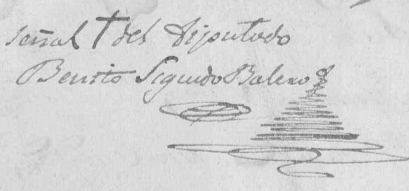 señal † del Diputado
Benito Segundo Balero